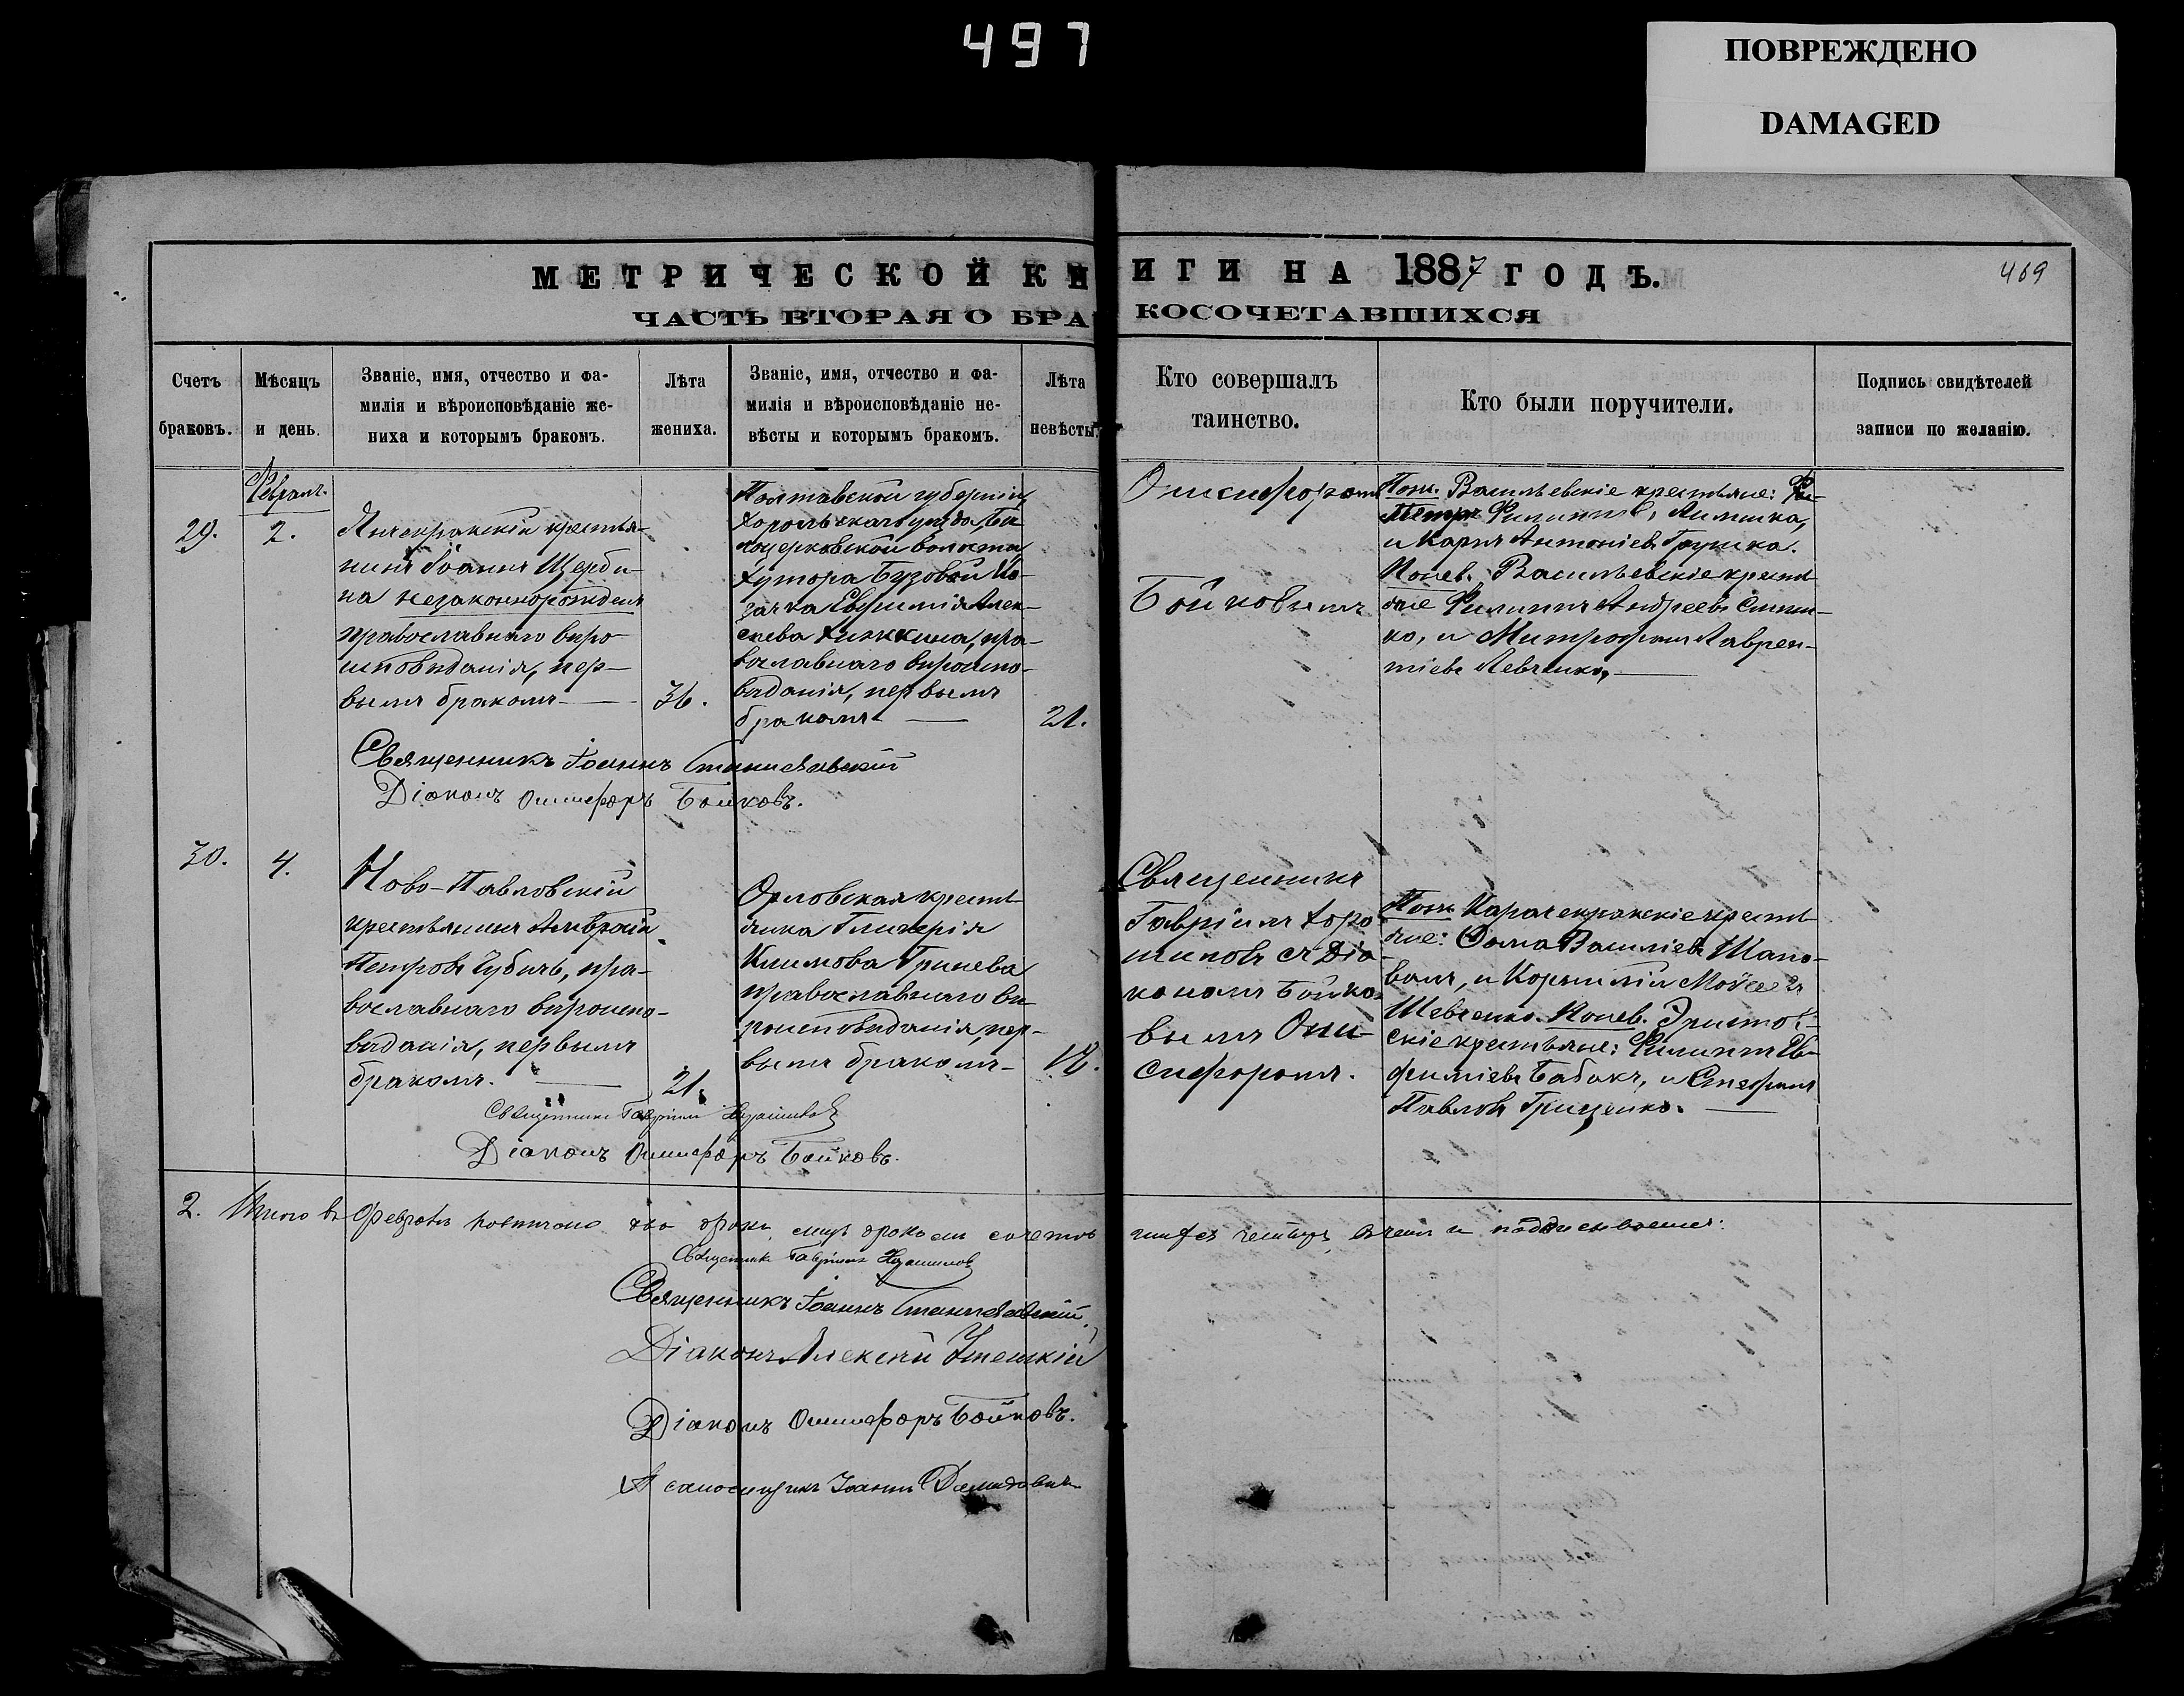 497
ПОВРЕЖДЕНО
DAMAGED
МЕТРИЧЕСКОЙ КНИГИ НА 1887 ГОДЪ.
469
ЧАСТЬ ВТОРАЯ О БРАКОСОЧЕТАВШИХСЯ
Счетъ браковъ.
Мѣсяцъ и день.
Званіе, имя, отчество и фа-
милія и вѣроисповѣданіе же-
ниха и которымъ бракомъ.
Лѣта
жениха.
Званіе, имя, отчество и фа-
милія и вѣроисповѣданіе не-
вѣсты и которымъ бракомъ.
Лѣта
невѣсты.
Кто совершалъ
таинство.
Кто были поручители.
Подпись свидѣтелей
записи по желанію.
29.
2.
крестья-
нинъ Іоаннъ Щерби-
на незаконнорожден
православнаго вѣро
исповѣданія, пер-
вымъ бракомъ
36.
Полтавской губерніи,
Хорольскаго уѣзда, Бѣ-
лоцерковской волости,
хутора Бузовой ко-
зачка Евфимія Алек-
сѣева пра-
вославнаго вѣроиспо-
вѣданія, первымъ
бракомъ
21.
Онисифоромъ
Бойковымъ
Васильевскіе крестьяне:
Петръ Филипповъ
и Карпъ Антоніевъ Грушка.
Понев. Васильевскіе кресть-
яне Филиппъ Андреевъ
ко, и Митрофанъ Лаврен-
тіевъ Левченко,
Священникъ Іоаннъ Станиславскій
Діаконъ Онисифоръ Бойковъ.
30.
4.
Ново-Павловскій
крестьянинъ
Петровъ пра-
вославнаго вѣроиспо-
вѣданія, первымъ
бракомъ.
21.
Орловская кресть-
янка Гликерія
Климова Гринева
православнаго вѣ-
роисповѣданія, пер-
вымъ бракомъ
Священникъ
Гавріилъ Хоро
шиловъ съ Діа-
кономъ Бойко-
вымъ Они-
сифоромъ.
Карачекракскіе кресть-
яне: Ѳома Василіевъ Шапо-
валъ, и Корнилій Моѵсеевъ
Шевченко. Понев. Эристов-
скіе крестьяне: Филиппъ Ев-
фиміевъ Бабакъ, и Стефанъ
Павловъ Грищенко.
Священникъ Гавріилъ
Діаконъ Онисифоръ Бойковъ.
2. Итого въ Февралѣ повѣнчано два брака, лицъ бракомъ сочетав шихся четыре, въ чемъ и подписываемся:
Священникъ Гавріилъ
Священникъ Іоаннъ Станиславскій,
Діаконъ Алексѣй
Діаконъ Онисифоръ Бойковъ.
Псаломщикъ Іоаннъ